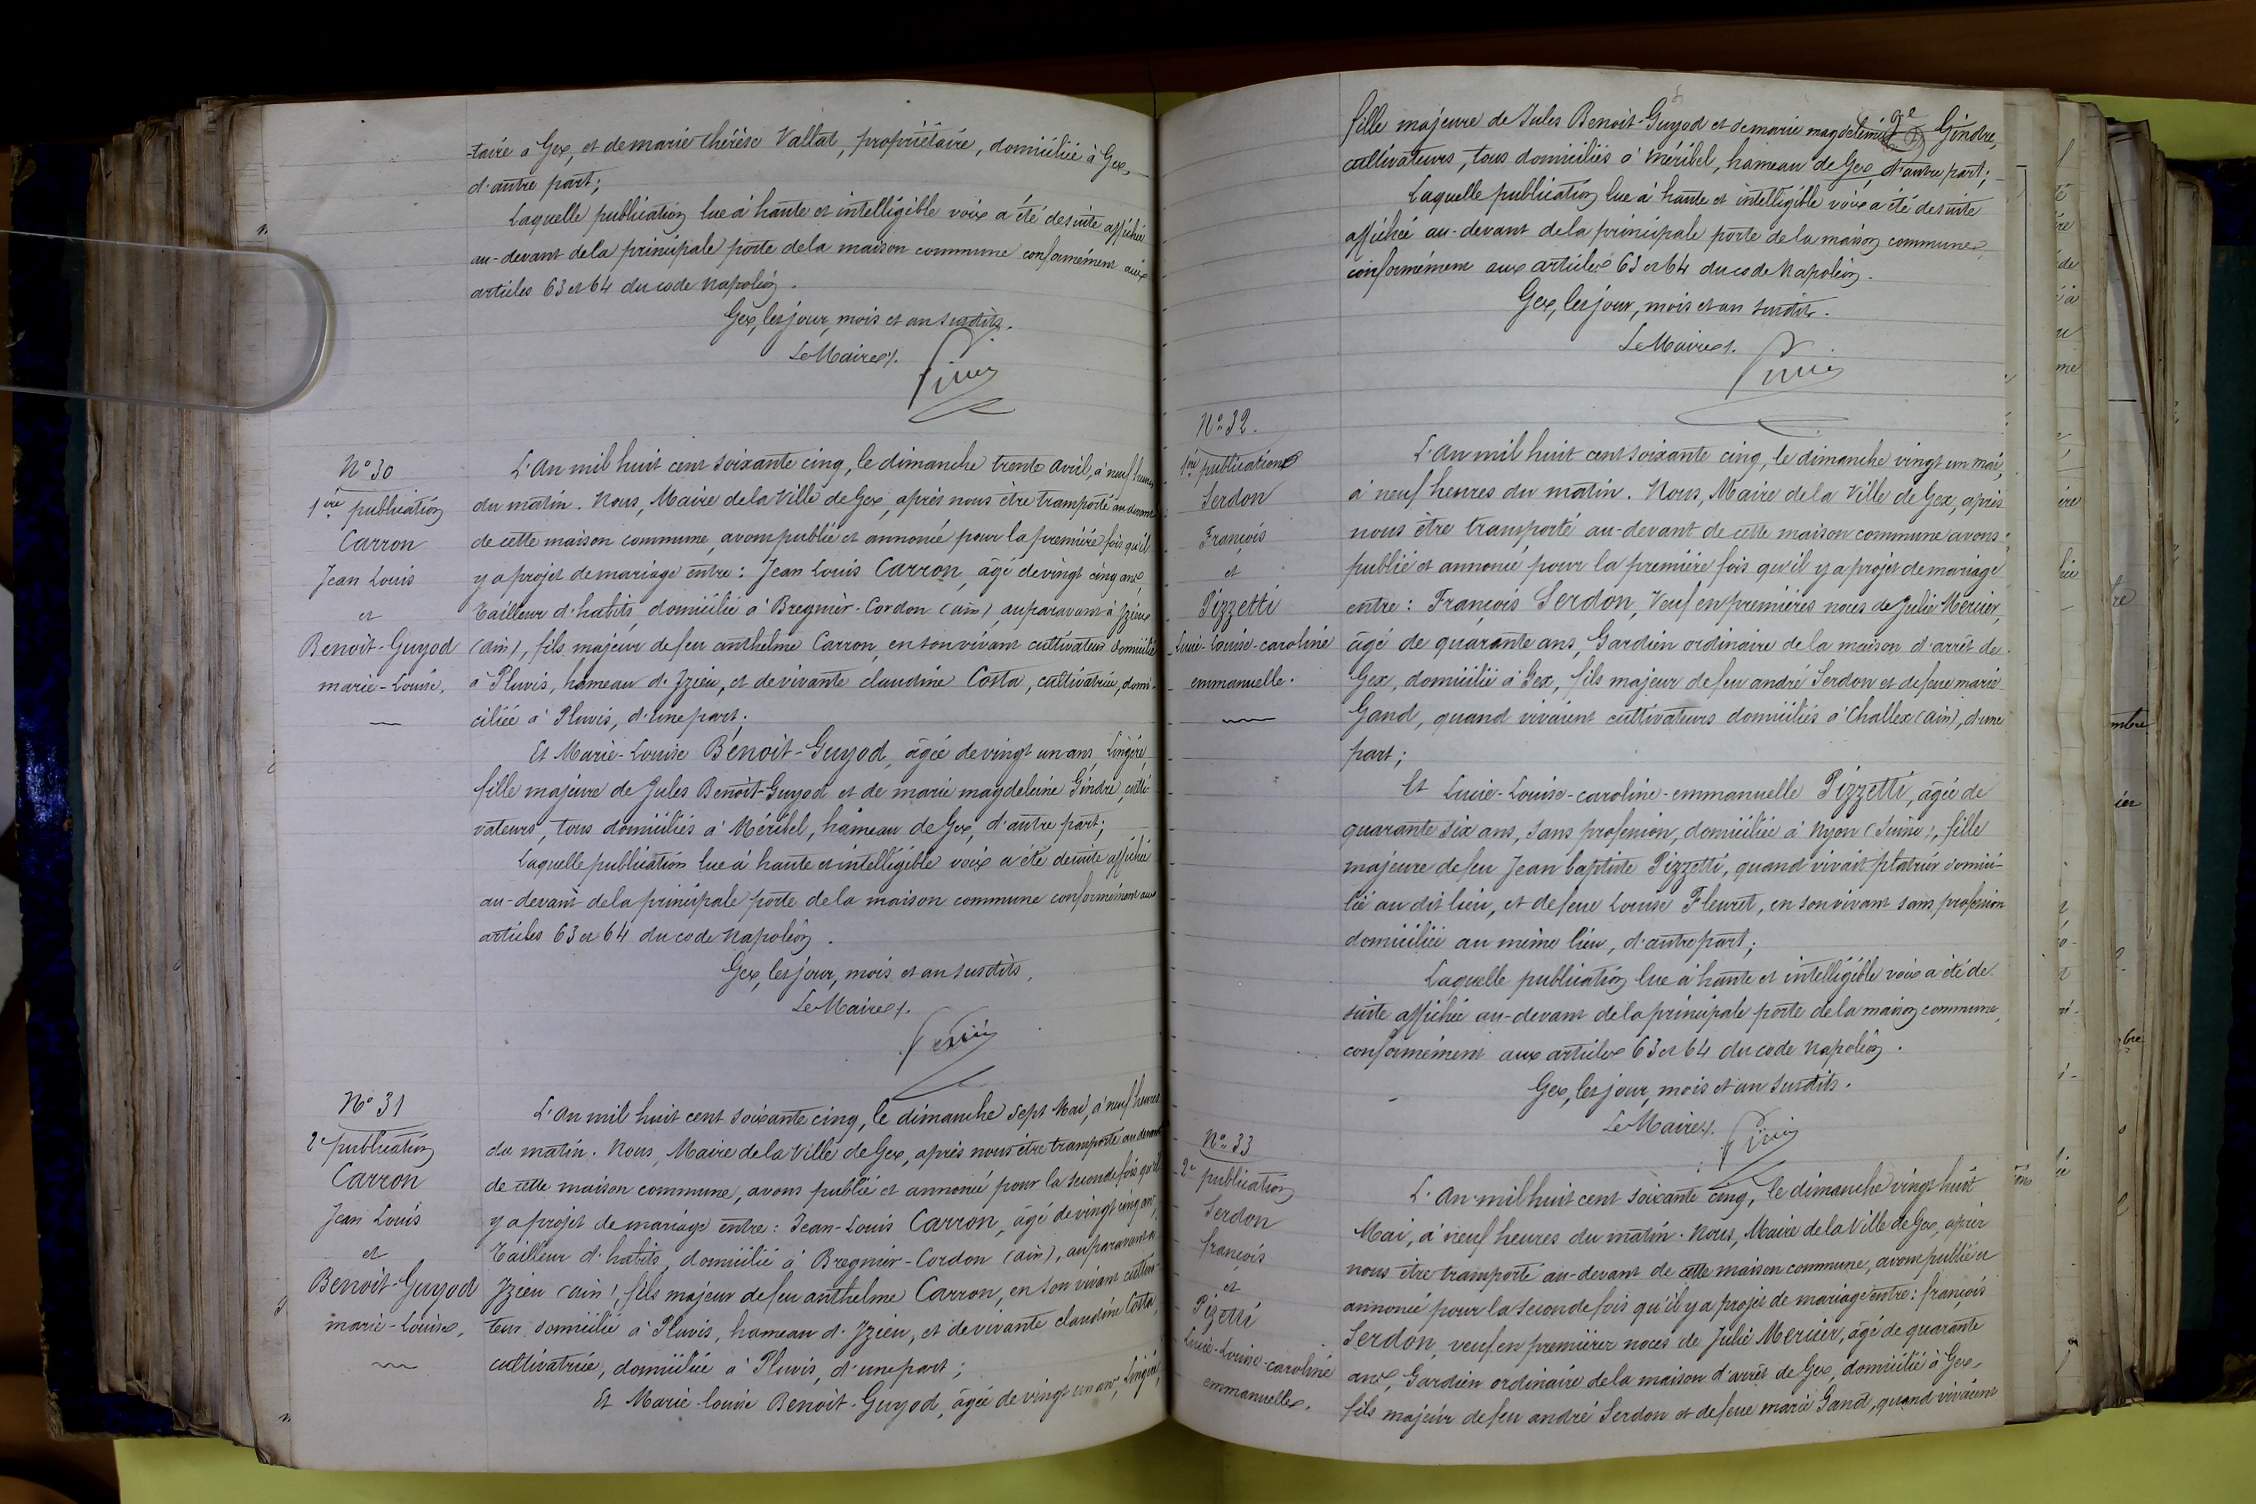 -taire à Gex, et de marie thérèse Vallat, propriétaire, domiciliée à Gex,
d'autre part;
Laquelle publication lue à haute et intelligible voix a été desuite affichée
au-devant de la principale porte de la maison commune conformément aux
articles 63 et 64 du code Napoléon.
Gex, les jour, mois et an susdits.
Le Maire
N° 30
1ère publication
Carron
Jean Louis
et
Benoit-Guyod
marie-Louise.
L'An mil huit cent soixante cinq, le dimanche trente avril, à neuf heures
du matin. Nous, Maire de la Ville de Gex, après nous être transporté au-devant
de cette maison commune, avons publié et annoncé pour la première fois qu'il
y a projet de mariage entre: Jean Louis Carron, âgé de vingt cinq ans,
Tailleur d'habits, domicilié à Bregnier-Cordon (ain), auparavant à Izieu
(ain), fils majeur de feu anthelme Carron, en son vivant cultivateur domicilié
à Pluvis, hameau d'Izieu, et de vivante claudine Costa, cultivatrice, domi-
ciliée à Pluvis, d'une part.
Et Marie-Louise Bénoit-Guyod, âgée de vingt un ans, Lingère,
fille majeure de Jules Benoit-Guyod et de marie magdeleine Gindre, culti-
vateurs, tous domiciliés à Méribel, hameau de Gex, d'autre part;
Laquelle publication lue à haute et intelligible voix a été desuite affichée
au-devant de la principale porte de la maison commune conformément aux
articles 63 et 64 du code Napoléon.
Gex, les jour, mois et an susdits.
Le Maire
N° 31
2e publication
Carron
Jean Louis
et
Benoit-Guyod
marie-Louise.
L'An mil huit cent soixante cinq, le dimanche sept Mai, à neuf heures
du matin. Nous, Maire de la Ville de Gex, après nous être transporté au devant
de cette maison commune, avons publié et annoncé pour la seconde fois qu'il
y a projet de mariage entre: Jean-Louis Carron, âgé de vingt cinq ans,
Tailleur d'habits, domicilié à Bregnier-Cordon (ain), auparavant à
Izieu (ain), fils majeur de feu anthelme Carron, en son vivant cultiva-
teur domicilié à Pluvis, hameau d'Izieu, et de vivante claudine Costa,
cultivatrice, domiciliée à Pluvis, d'une part;
Et Marie-louise Benoit-Guyod, âgée de vingt un ans, Lingère,
fille majeure de Jules Benoit-Guyod et de marie magdeleine Gindre,
cultivateurs, tous domiciliés à Méribel, hameau de Gex, d'autre part;
Laquelle publication lue à haute et intelligible voix a été desuite
affichée au-devant de la principale porte de la maison commune,
conformément aux articles 63 et 64 du code Napoléon.
Gex, les jour, mois et an susdits.
Le Maire
N° 32.
1ère publication
Serdon
François
et
Pizzetti
Lucie-Louise-caroline
emmanuelle.
L'An mil huit cent soixante cinq, le dimanche vingt un mai,
à neuf heures du matin. Nous, Maire de la Ville de Gex, après
nous être transporté au-devant de cette maison commune avons
publié et annoncé pour la première fois qu'il y a projet de mariage
entre: François Serdon, Veuf en premières noces de Julie Mercier,
âgé de quarante ans, Gardien ordinaire de la maison d'arrêt de
Gex, domicilié à Gex, fils majeur de feu andré Serdon et de feue marie
Gand, quand vivaient cultivateurs domiciliés à Challex (ain), d'une
part;
Et Lucie-Louise-caroline-emmanuelle Pizzetti, âgée de
quarante six ans, sans profession, domiciliée à Nyon (Suisse), fille
majeure de feu Jean baptiste Pizzetti, quand vivait platrier domici-
lié au dit lieu, et de feue Louise Fleuret, en son vivant sans profession
domiciliée au même lieu, d'autre part;
Laquelle publication lue à haute et intelligible voix a été de
suite affichée au-devant de la principale porte de la maison commune,
conformément aux articles 63 et 64 du code Napoléon.
Gex, les jour, mois et an susdits.
Le Maire
N° 33
2e publication
Serdon
françois
et
Pizetti
Lucie-Louise-caroline
emmanuelle.
L'An mil huit cent soixante cinq, le dimanche vingt huit
Mai, à neuf heures du matin. Nous, Maire de la Ville de Gex, après
nous être transporté au-devant de cette maison commune, avons publié et
annoncé pour la seconde fois qu'il y a projet de mariage entre: françois
Serdon, veuf en premières noces de Julie Mercier, âgé de quarante
ans, Gardien ordinaire de la maison d'arrêt de Gex, domicilié à Gex,
fils majeur de feu andré Serdon et de feue marie Gand, quand vivaient